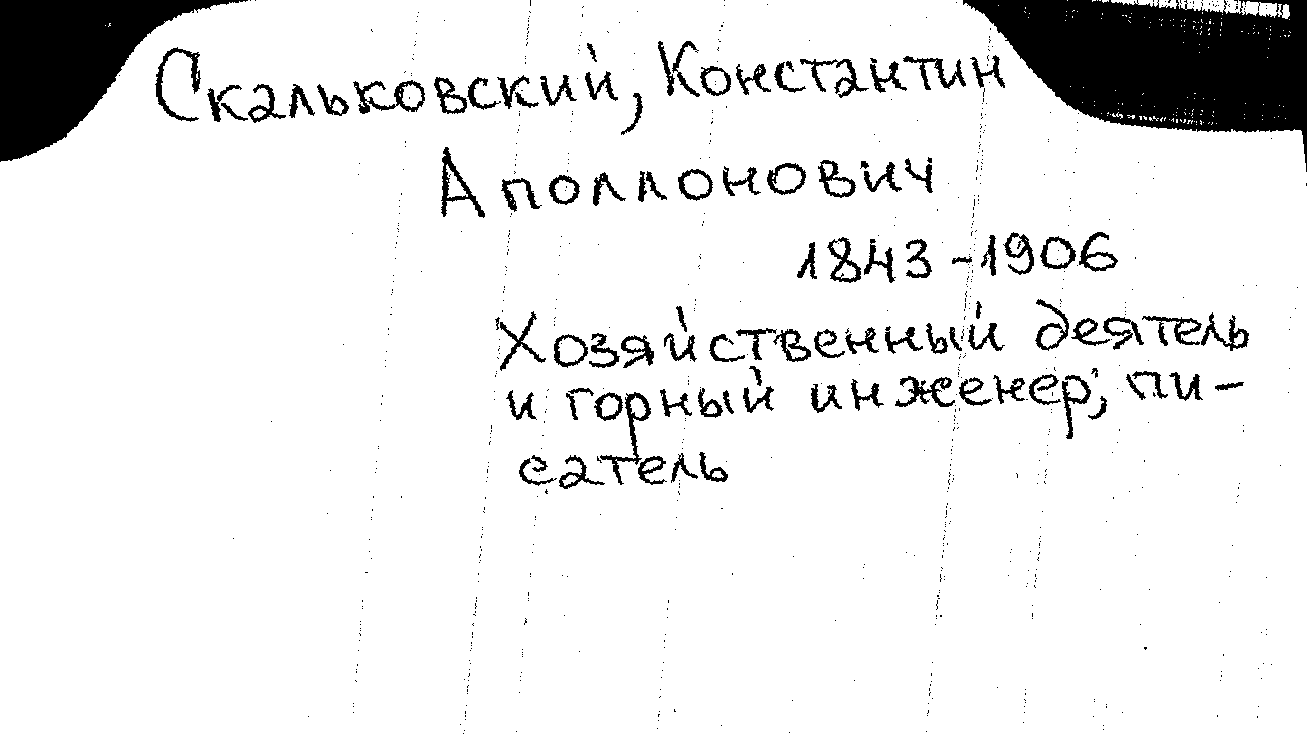 Скальковский, Константин
Аполлонович
1843-1906
Хозяйственный деятель
и горный инженер; пи-
сатель